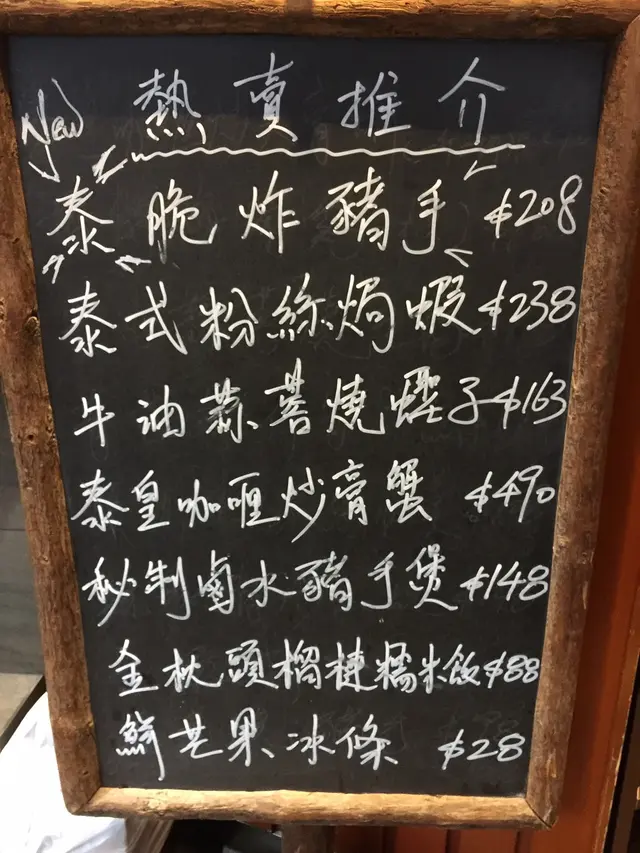 New 熱賣推介
泰脆炸豬手 $208
泰式粉絲焗蝦 $238
牛油蒜蓉燒蟶子 $163
泰皇咖喱炒膏蟹 $490
秘制鹵水豬手煲 $148
金枕頭榴槤糯米飯 $88
鮮芒果冰條 $28